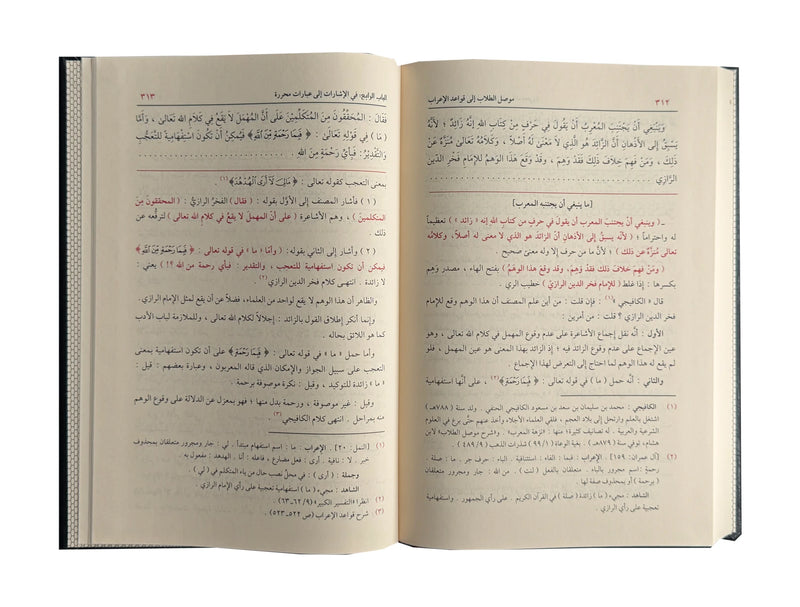 ٣١٢ موصل الطلاب إلى قواعد الإعراب
وَيَنْبَغِي أَنْ يَجْتَنِبَ المُعْرِبُ أَنْ يَقُولَ فِي حَرْفٍ مِنْ كِتَابِ اللهِ إِنَّهُ زَائِدٌ ؛ لأَنَّهُ
يَسْبِقُ إِلَى الأَذْهَانِ أَنَّ الزَّائِدَ هُوَ الَّذِي لَا مَعْنَى لَهُ أَصْلاً ، وَكَلَامُهُ تَعَالَى مُنَزَّهٌ عَنْ
ذَلِكَ ، وَمَنْ فَهِمَ خِلَافَ ذَلِكَ فَقَدْ وَهِمَ ، وَقَدْ وَقَعَ هَذَا الوَهَمُ لِلإِمَامِ فَخْرِ الدِّينِ
الرَّازِي
[ما ينبغي أن يجتنبه المعرب]
ـ ( وينبغي أنْ يجتنبَ المعرب أن يقولَ في حرفٍ من كتاب الله إنه « زائد » ) تعظيماً
له واحتراماً ؛ ( لأنه يسبقُ إلى الأذهانِ أنَّ الزائد هو الذي لا معنى له أصلاً، وكلامُه
تعالى مُنزَّهٌ عن ذلك ) ؛ لأنَّ ما من حرفٍ إلا وله معنى صحيح .
( ومَنْ فهمَ خلافَ ذلك فقدْ وَهِمَ، وقد وقعَ هذا الوهَمُ ) بفتح الهاء ، مصدر وَهِم
بكسرها : إذا غلط ( للإمام فخر الدين الرازيِّ ) خطيب الري .
قال « الكافِيَجي »(١) : فإن قلت : من أين علم المصنف أن هذا الوهم وقع للإمام
فخر الدين الرازي ؟ قلت : من أمرين :
الأول : أنَّه نقل إجماع الأشاعرة على عدم وقوع المهمل في كلام الله تعالى ، وهو
عين الإجماع على عدم وقوع الزائد فيه ؛ إذ الزائد بهذا المعنى هو عين المهمل ، فلو
لم يقع له هذا الوهم لما احتاج إلى التعرض لهذا الإجماع .
والثاني : أنَّه حمل ( ما ) في قوله تعالى : ﴿ فَبِمَا رَحْمَةٍ ﴾(٢) ، على أنَّها استفهامية
(١) الكافِيَجي : محمد بن سليمان بن سعد بن مسعود الكافيجي الحنفي . ولد سنة (٧٨٨هـ)
اشتغل بالعلم وارتحل إلى بلاد العجم ، فلقي العلماء الأجلاء وأخذ عنهم حتَّى برع في العلوم
الشرعية والعربية . له تصانيف كثيرة؛ منها: «نزهة المعرب» و«شرح موصل الطلاب» لابن
هشام، توفي سنة (٨٧٩هـ). بغية الوعاة (١/ ٩٩) شذرات الذهب (٩/ ٤٨٩) .
(٢) [آل عمران: ١٥٩]. الإعراب : فبما : الفاء: استئنافية . الباء : حرف جر . ما : زائدة .
رحمةٍ: اسم مجرور بالباء . متعلقان بالفعل ( لنت ) . من الله : جار ومجرور متعلقان
( برحمة ) أو بمحذوف صفة لها .
الشاهد : مجيء ( ما ) زائدة ( صلة ) في القرآن الكريم . على رأي الجمهور . واستفهامية
تعجبية على رأي الرازي .
الباب الرابع: في الإشارات إلى عبارات محررة ٣١٣
فَقَالَ : المُحَقِّقُونَ مِنَ المُتَكَلِّمِينَ عَلَى أَنَّ المُهْمَلَ لَا يَقَعُ فِي كَلَامِ اللهِ تَعَالَى ، وَأَمَّا
( مَا ) فِي قَوْلِهِ تَعَالَى : ﴿ فَبِمَا رَحْمَةٍ مِّنَ اللَّهِ ﴾ فَيُمْكِنُ أَنْ تَكُونَ اسْتِفْهَامِيَّةً لِلتَّعَجُّبِ
وَالتَّقْدِيرُ : فَبِأَيِّ رَحْمَةٍ مِنَ اللهِ .
بمعنى التعجب كقوله تعالى : ﴿ مَالِيَ لَآ أَرَى الْهُدْهُدَ ﴾(١) .
( ١ ) فأشار المصنف إلى الأوَّل بقوله : ( فقال ) الفخر الرازيُّ : ( المحققون مِنَ
المتكلمينَ ) ، وهم الأشاعرة ( على أنَّ المهملَ لا يقعُ في كلامِ الله تعالى ) لترفُّعه عن
ذلك .
( ٢ ) وأشار إلى الثاني بقوله: ( وأمَّا «ما» في قوله تعالى : ﴿ فَبِمَا رَحْمَةٍ مِّنَ اللَّهِ ﴾
فيمكن أن تكون استفهامية للتعجب ، والتقدير : فبأي رحمة من الله ؟! ) يعني :
لا زائدة . انتهى كلام فخر الدين الرازي(٢) .
والظاهر أن هذا الوهم لا يقع لواحد من العلماء، فضلاً عن أن يقع لمثل الإمام الرازي.
وإنما أنكر إطلاق القول بالزائد : إجلالاً لكلام الله تعالى ، وللملازمة لباب الأدب
كما هو اللائق بحاله .
وأما حمل « ما » في قوله تعالى : ﴿ فَبِمَا رَحْمَةٍ ﴾ على أن تكون استفهامية بمعنى
التعجب على سبيل الجواز والإمكان الذي قاله المعربون ، وعبارة بعضهم : قيل :
« ما » زائدة للتوكيد ، وقيل : نكرة موصوفة برحمة .
وقيل : غير موصوفة ، ورحمة بدل منها ؛ فهو بمعزل عن الدلالة على وقوع الوهم
منه بمراحل . انتهى كلام الكافيجي(٣) .
(١) [النمل : ٢٠] . الإعراب : ما : اسم استفهام مبتدأ . لي : جار ومجرور متعلقان بمحذوف
خبر . لا : نافية . أرى : فعل مضارع ، فاعله : أنا . الهدهد : مفعول به .
وجملة : ( أرى ) : في محلِّ نصب حال من ياء المتكلم في ( لي ) .
الشاهد : مجيء ( ما ) استفهامية تعجبية على رأي الإمام الرازي .
(٢) انظر: «التفسير الكبير» (٩/ ٦٢ـ٦٣) .
(٣) شرح قواعد الإعراب (ص ٥٢٢ـ٥٢٣) .